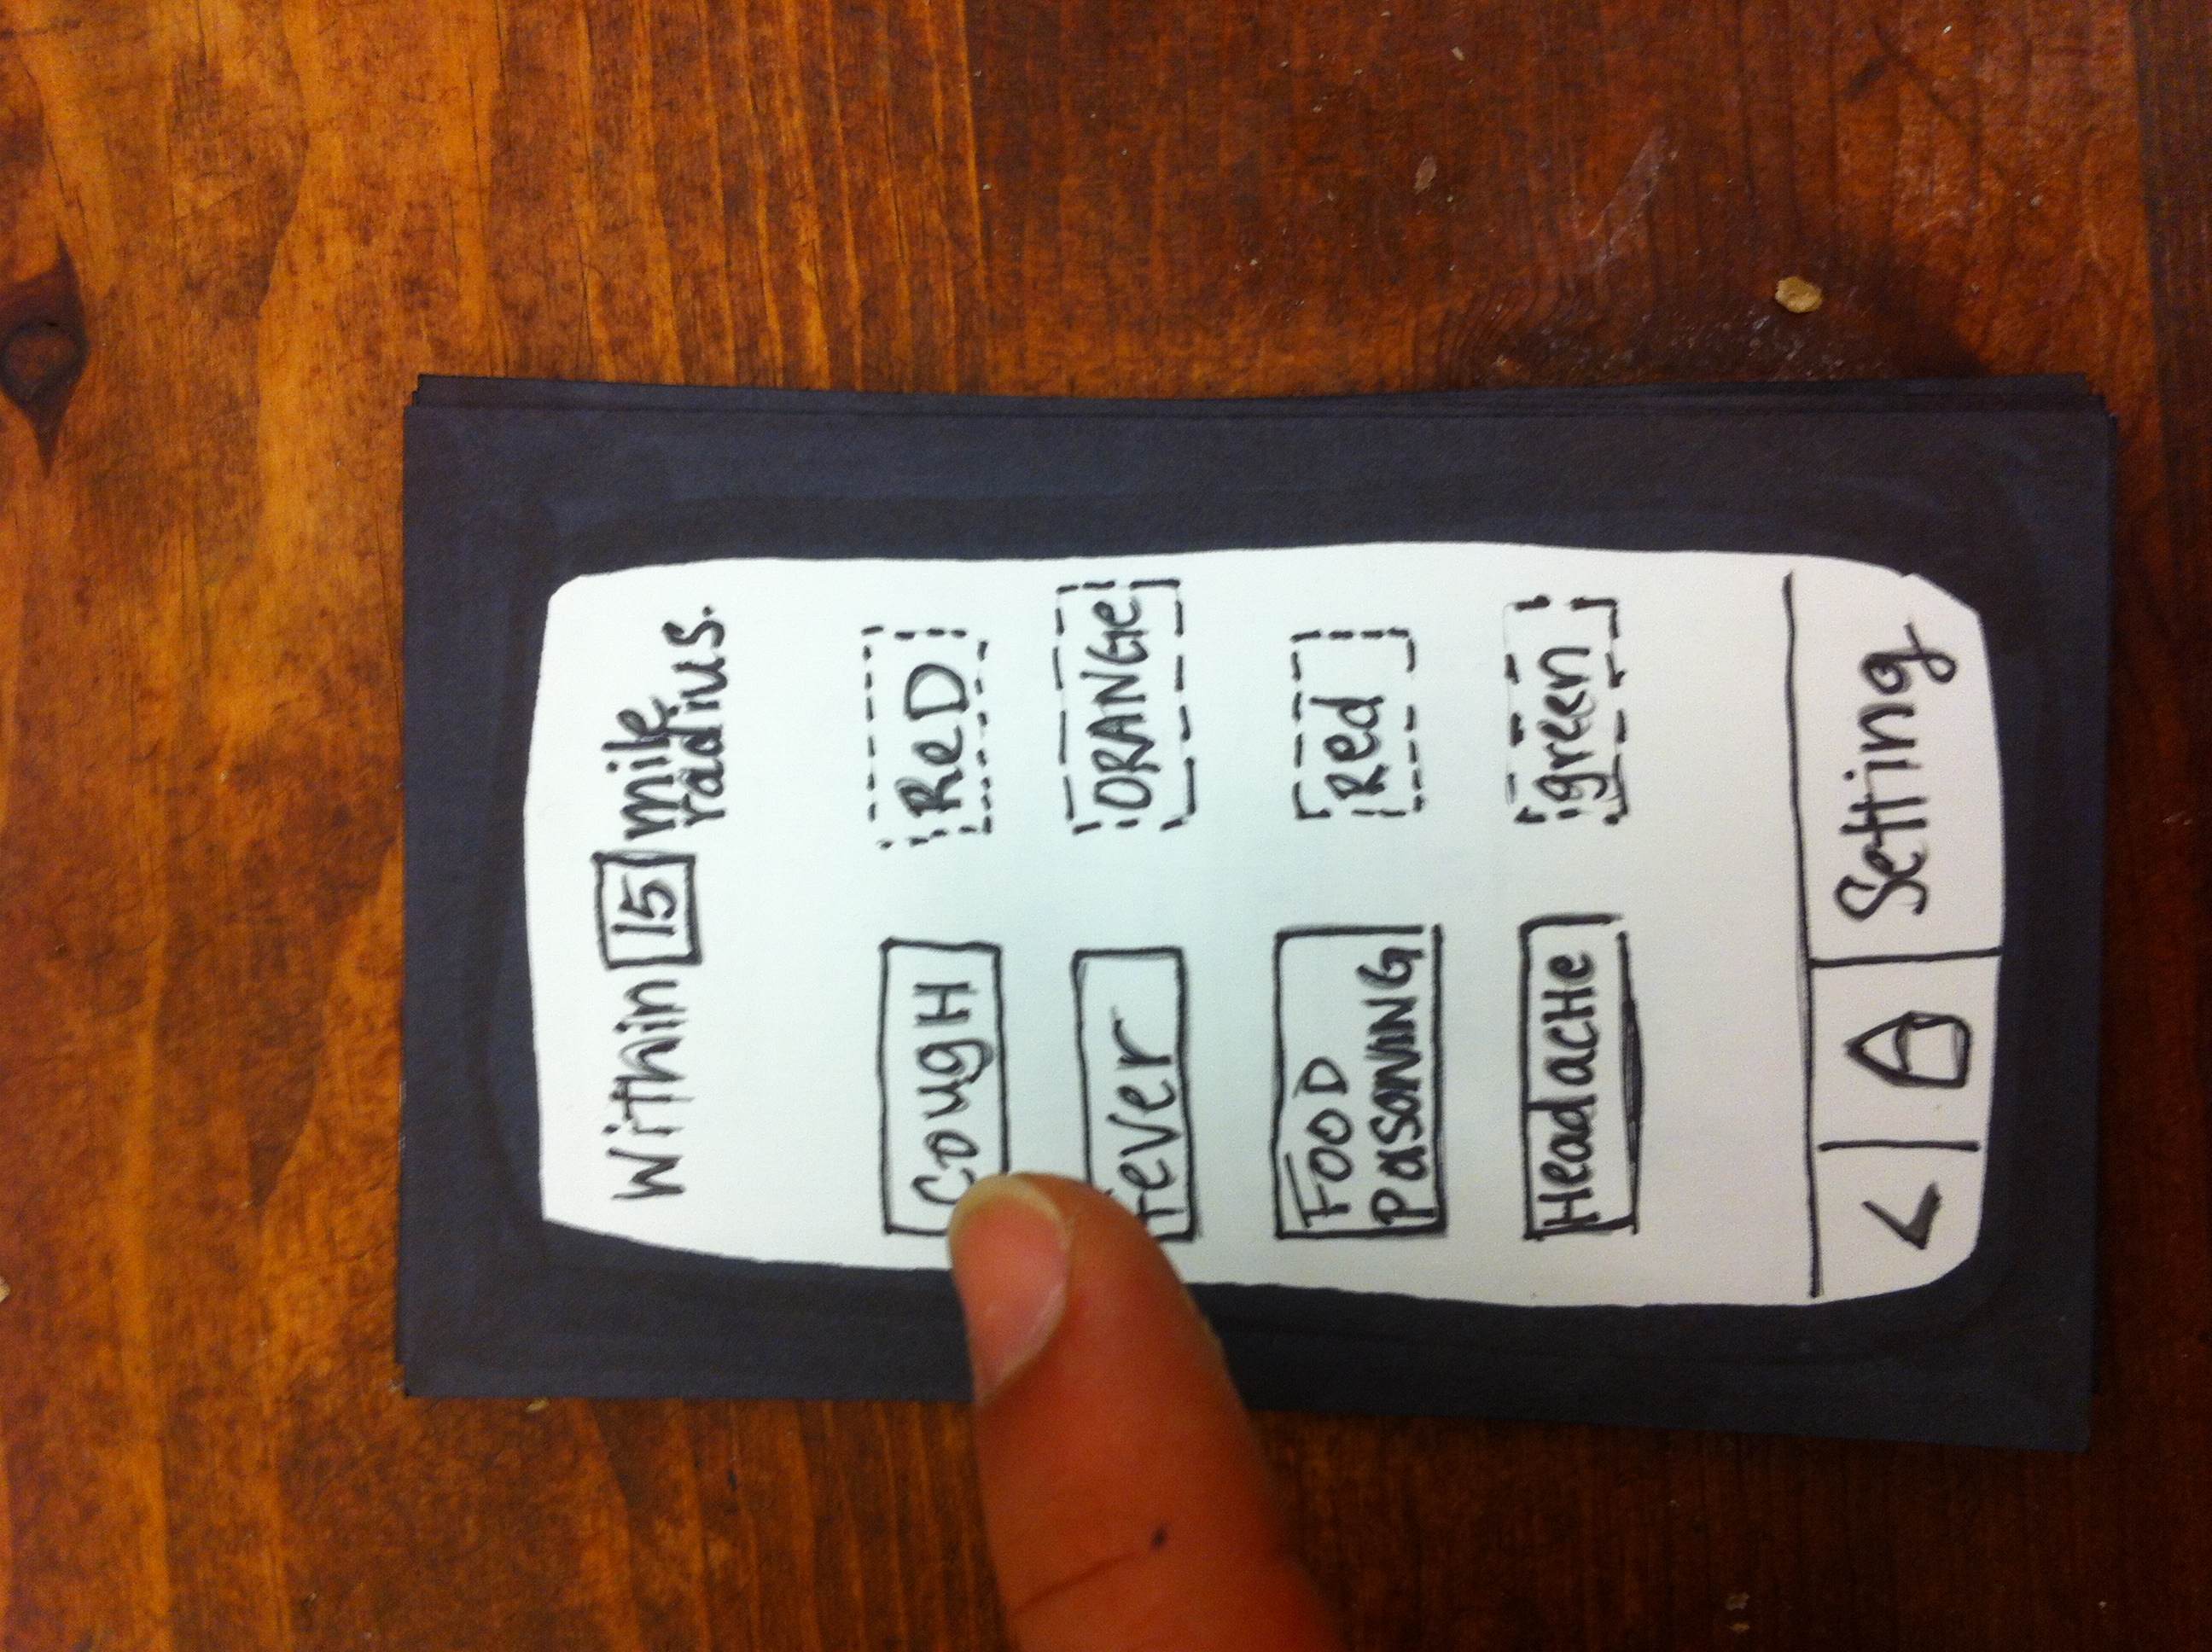 Within 15 mile
radius.
CougH
ReD
fever
ORANGe
FOOD
POISONING
Red
HeadacHe
green
<
Setting